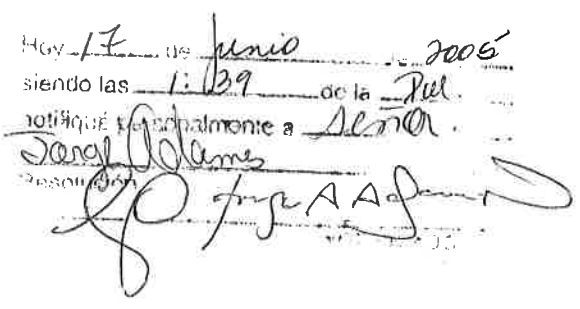 Hoy 17 de junio de 2005
siendo las 1:39 de la P.M.
notifiqué personalmente a señor.
Jorge Adames
Resolución
Jorge A Adames